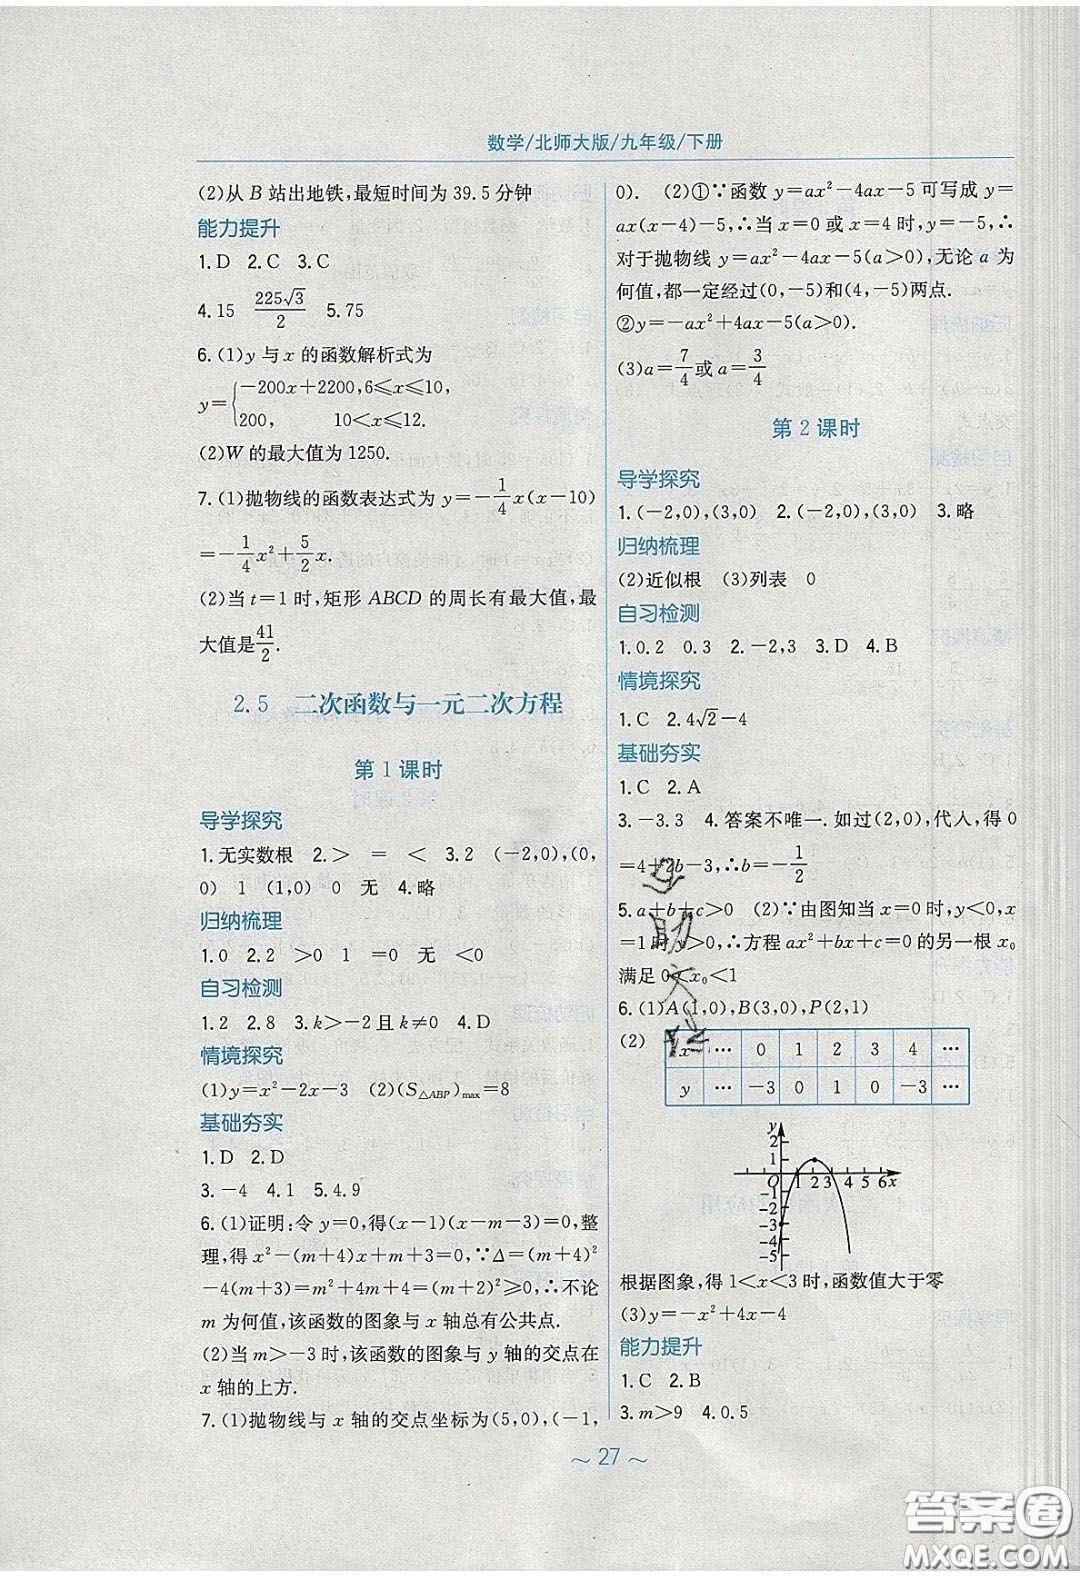 数学/北师大版/九年级/下册
(2)从 B 站出地铁,最短时间为 39.5 分钟
能力提升
1.D 2.C 3.C
4.15 225√3/2 5.75
6.(1)y 与 x 的函数解析式为
y={-200x+2200,6⩽x⩽10,
200, 10<x⩽12.
(2)W 的最大值为 1250.
7.(1)抛物线的函数表达式为 y=-1/4x(x-10)
=-1/4x²+5/2x.
(2)当 t=1 时,矩形 ABCD 的周长有最大值,最
大值是41/2.
2.5 二次函数与一元二次方程
第 1 课时
导学探究
1.无实数根 2.> = < 3.2 (-2,0),(0,
0) 1 (1,0) 0 无 4.略
归纳梳理
1.0 2.2 >0 1 =0 无 <0
自习检测
1.2 2.8 3.k>-2 且 k≠0 4.D
情境探究
(1)y=x²-2x-3 (2)(S△ABP)max=8
基础夯实
1.D 2.D
3.-4 4.1 5.4.9
6.(1)证明:令 y=0,得(x-1)(x-m-3)=0,整
理,得 x²-(m+4)x+m+3=0,∵Δ=(m+4)²
-4(m+3)=m²+4m+4=(m+2)²⩾0,∴不论
m 为何值,该函数的图象与 x 轴总有公共点.
(2)当 m>-3 时,该函数的图象与 y 轴的交点在
x 轴的上方.
7.(1)抛物线与 x 轴的交点坐标为(5,0),(-1,
0). (2)①∵函数 y=ax²-4ax-5 可写成 y=
ax(x-4)-5,∴当 x=0 或 x=4 时,y=-5,∴
对于抛物线 y=ax²-4ax-5(a>0),无论 a 为
何值,都一定经过(0,-5)和(4,-5)两点.
②y=-ax²+4ax-5(a>0).
(3)a=7/4或 a=3/4
第 2 课时
导学探究
1.(-2,0),(3,0) 2.(-2,0),(3,0) 3.略
归纳梳理
(2)近似根 (3)列表 0
自习检测
1.0.2 0.3 2.-2,3 3.D 4.B
情境探究
1.C 2.4√2-4
基础夯实
1.C 2.A
3.-3.3 4.答案不唯一.如过(2,0),代人,得 0
=4+2b-3,∴b=-1/2
5.a+b+c>0 (2)∵由图知当 x=0 时,y<0,x
=1时 y>0,∴方程 ax²+bx+c=0 的另一根 x₀
满足 0<x₀<1
6.(1)A(1,0),B(3,0),P(2,1)
(2) x … 0 1 2 3 4 …
y … -3 0 1 0 -3 …
y
2
1
O 1 2 3 4 5 6 x
-1
-2
-3
-4
-5
根据图象,得 1<x<3 时,函数值大于零
(3)y=-x²+4x-4
能力提升
1.C 2.B
3.m>9 4.0.5
～ 27 ～
答案圈
MXQE.COM